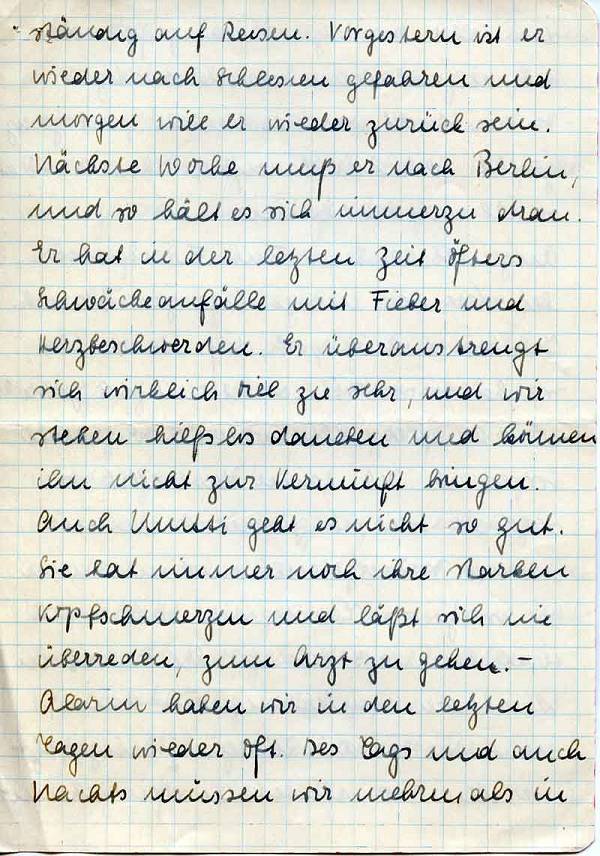 ständig auf Reisen. Vorgestern ist er
wieder nach Schlesien gefahren und
morgen will er wieder zurück sein.
Nächste Woche muß er nach Berlin,
und so hält es sich immerzu dran.
Er hat in der letzten Zeit öfters
Schwächeanfälle mit Fieber und
Herzbeschwerden. Er überanstrengt
sich wirklich viel zu sehr, und wir
stehen hilfslos daneben und können
ihn nicht zur Vernunft bringen.
Auch Mutti geht es nicht so gut.
Sie hat immer noch ihre starken
Kopfschmerzen und läßt sich nie
überreden, zum Arzt zu gehen. –
Alarm haben wir in den letzten
Tagen wieder oft. Des Tags und auch
Nachts müssen wir mehrmals in